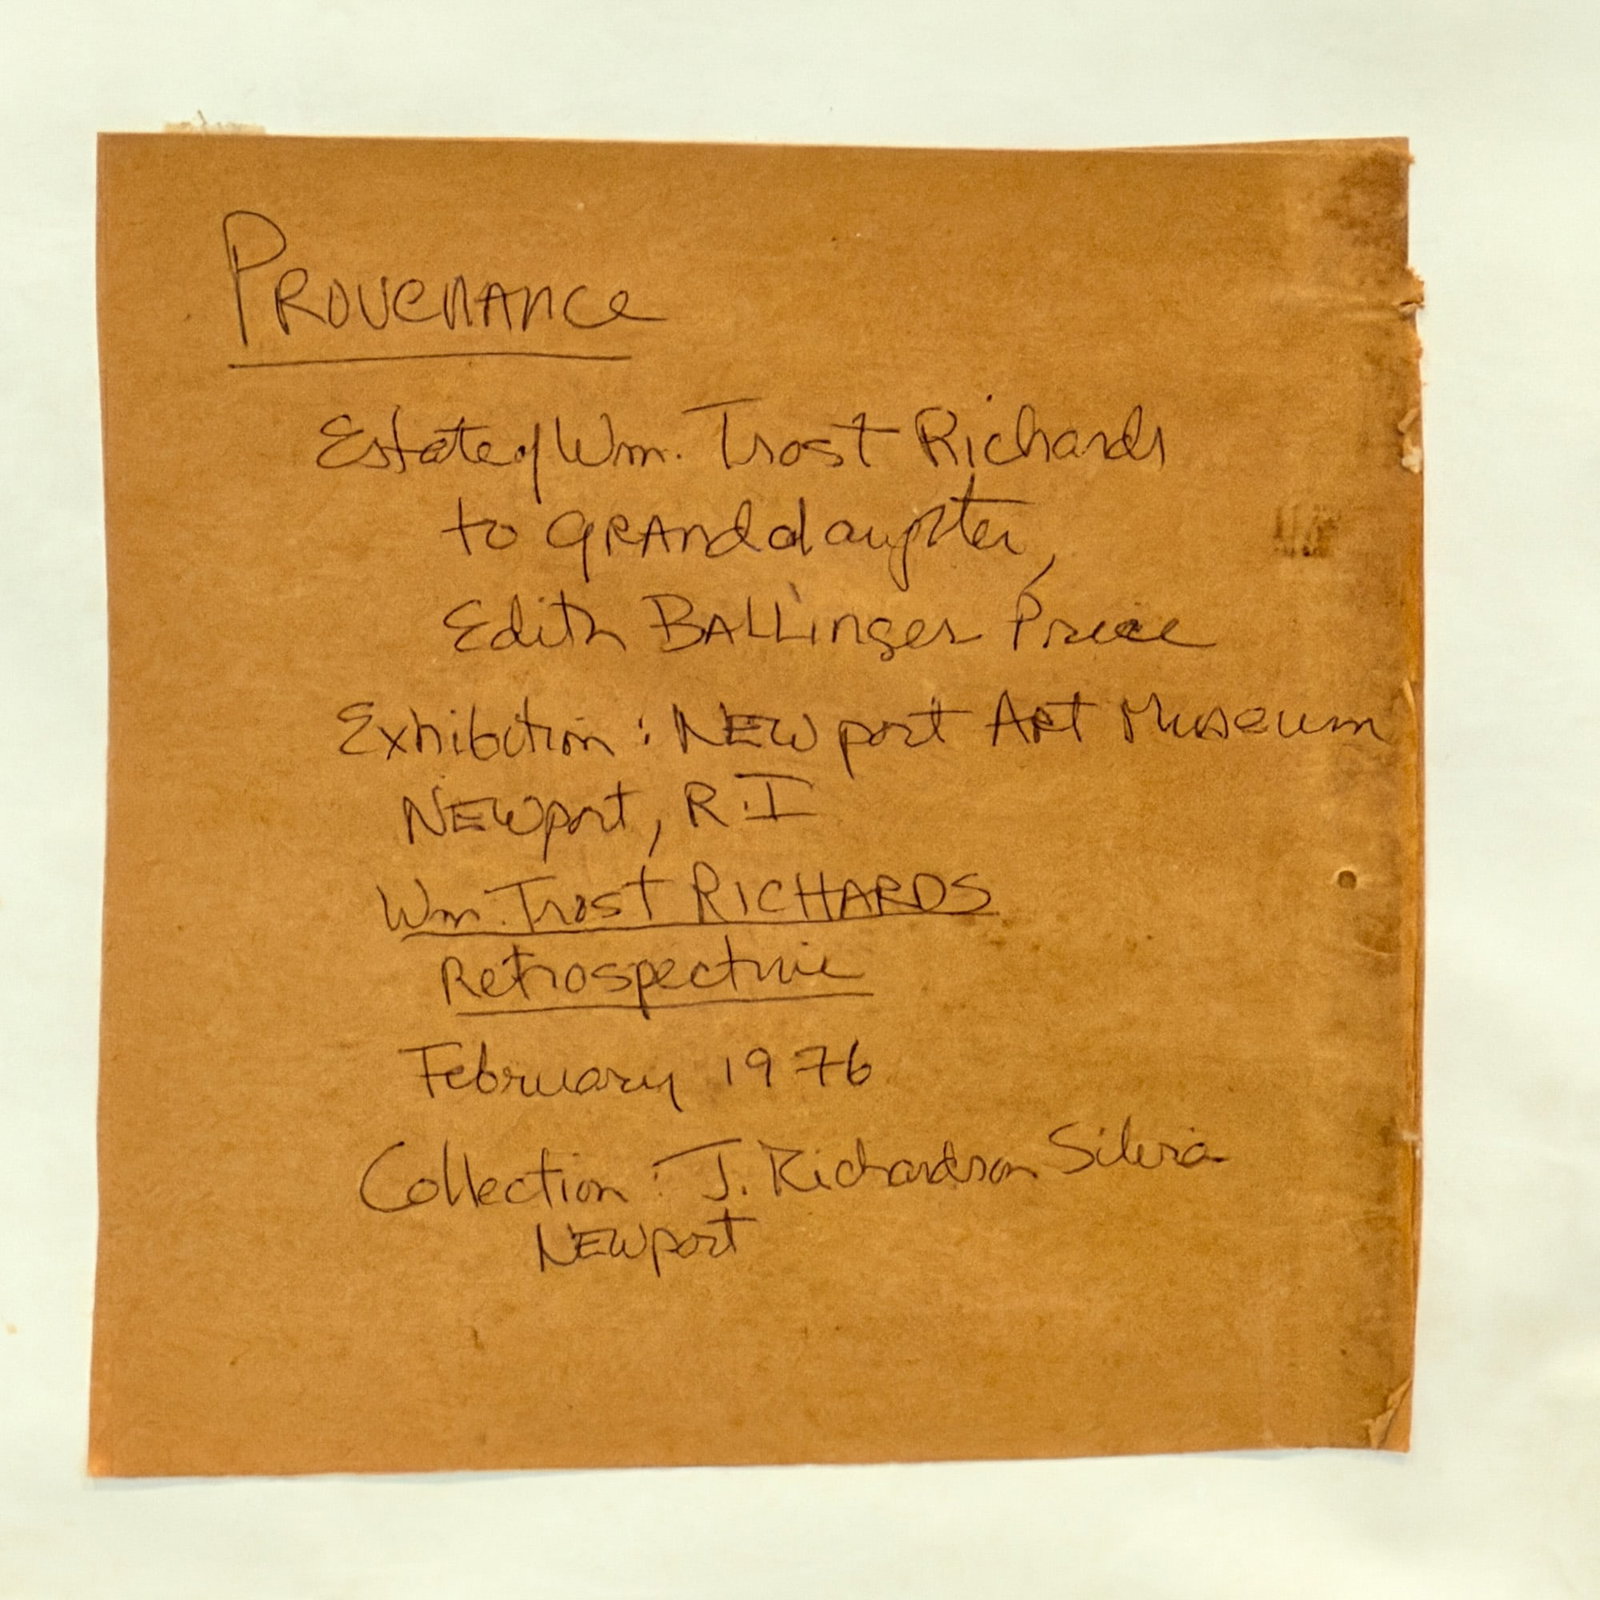 Provenance
Estate of Wm. Trost Richards
to Granddaughter,
Edith Ballinger Price
Exhibition: Newport Art Museum
Newport, R.I
Wm. Trost RICHARDS
Retrospective
February 1976
Collection: J. Richardson Silvia
Newport